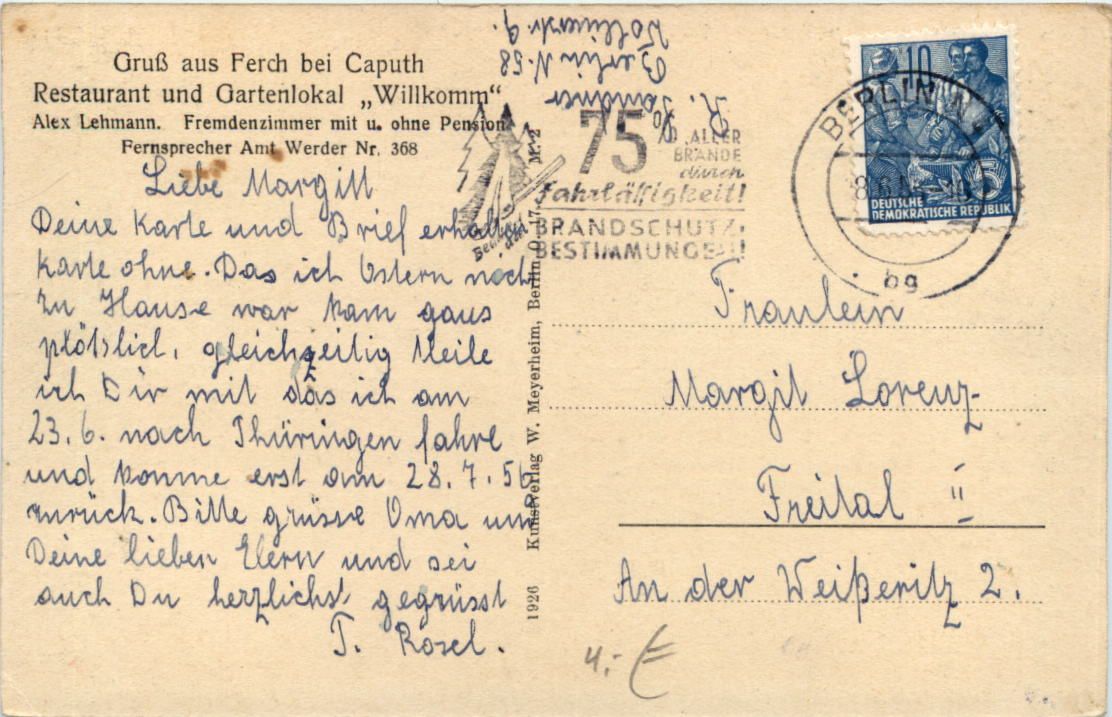 Gruß aus Ferch bei Caputh
Restaurant und Gartenlokal „Willkomm“
Alex Lehmann. Fremdenzimmer mit u. ohne Pension
Fernsprecher Amt Werder Nr. 368
Liebe Margitt
Deine Karte und Brief erhalten
Karte ohne. Das ich Ostern nich
zu Hause war kam gans
plötslich, gleichzeitig teile
ich Dir mit das ich am
23.6. nach Thüringen fahre
und komme erst am 28.7.56
zurück. Bitte grüsse Oma und
Deine lieben Elern und sei
auch Du herzlichst gegrüsst
T. Rosel.
1926 Kunstverlag W. Meyerheim, Berlin O. 17 M. 2
R.
Berlin N. 58
9.
75 % ALLER
BRÄNDE
durch
Fahrlässigkeit!
BRANDSCHUTZ-
BESTIMMUNGEN!
BERLIN N
8.6.
bg
10
5
DEUTSCHE
DEMOKRATISCHE REPUBLIK
Fräulein
Margit Lorenz
Freital II
An der Weißeritz 2.
4,- €